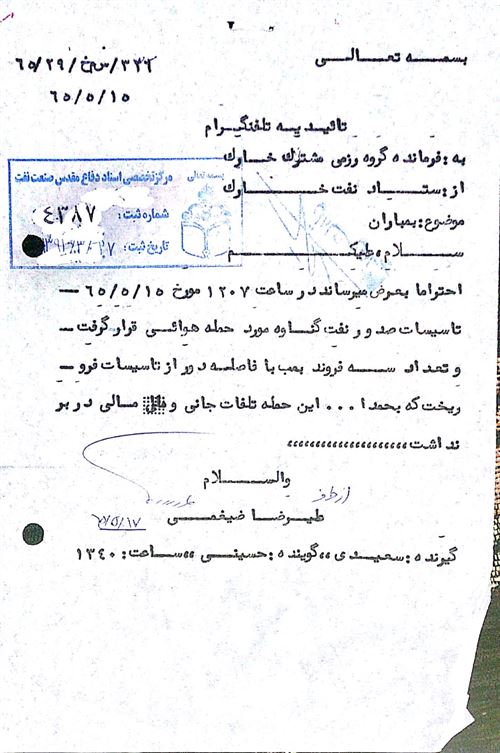 ۲
بسمه تعالی
۶۵/۲۹/س خ/۳۳۶
۶۵/۵/۱۵
تائیدیه تلفنگرام
به: فرمانده گروه رزمی مشترک خارک
از: ستاد نفت خارک
موضوع: بمباران
سلام علیکم
بسمه تعالی
مرکز تخصصی اسناد دفاع مقدس صنعت نفت
شماره ثبت: ۴۳۸۷
تاریخ ثبت:
احتراما بعرض میرساند در ساعت ۱۲۰۷ مورخ ۶۵/۵/۱۵ –
تاسیسات صدور نفت گناوه مورد حمله هوائی قرار گرفت –
و تعداد سه فروند بمب با فاصله دور از تاسیسات فرو –
ریخت که بحمدا... این حمله تلفات جانی و مالی در بر
نداشت،،،،،،،،،،،،،،،،،،،،،
والسلام
از طرف
علیرضا ضیغمی
۶۵/۵/۱۷
گیونده: سعیدی،،گوینده: حسینی،،ساعت: ۱۳۴۰